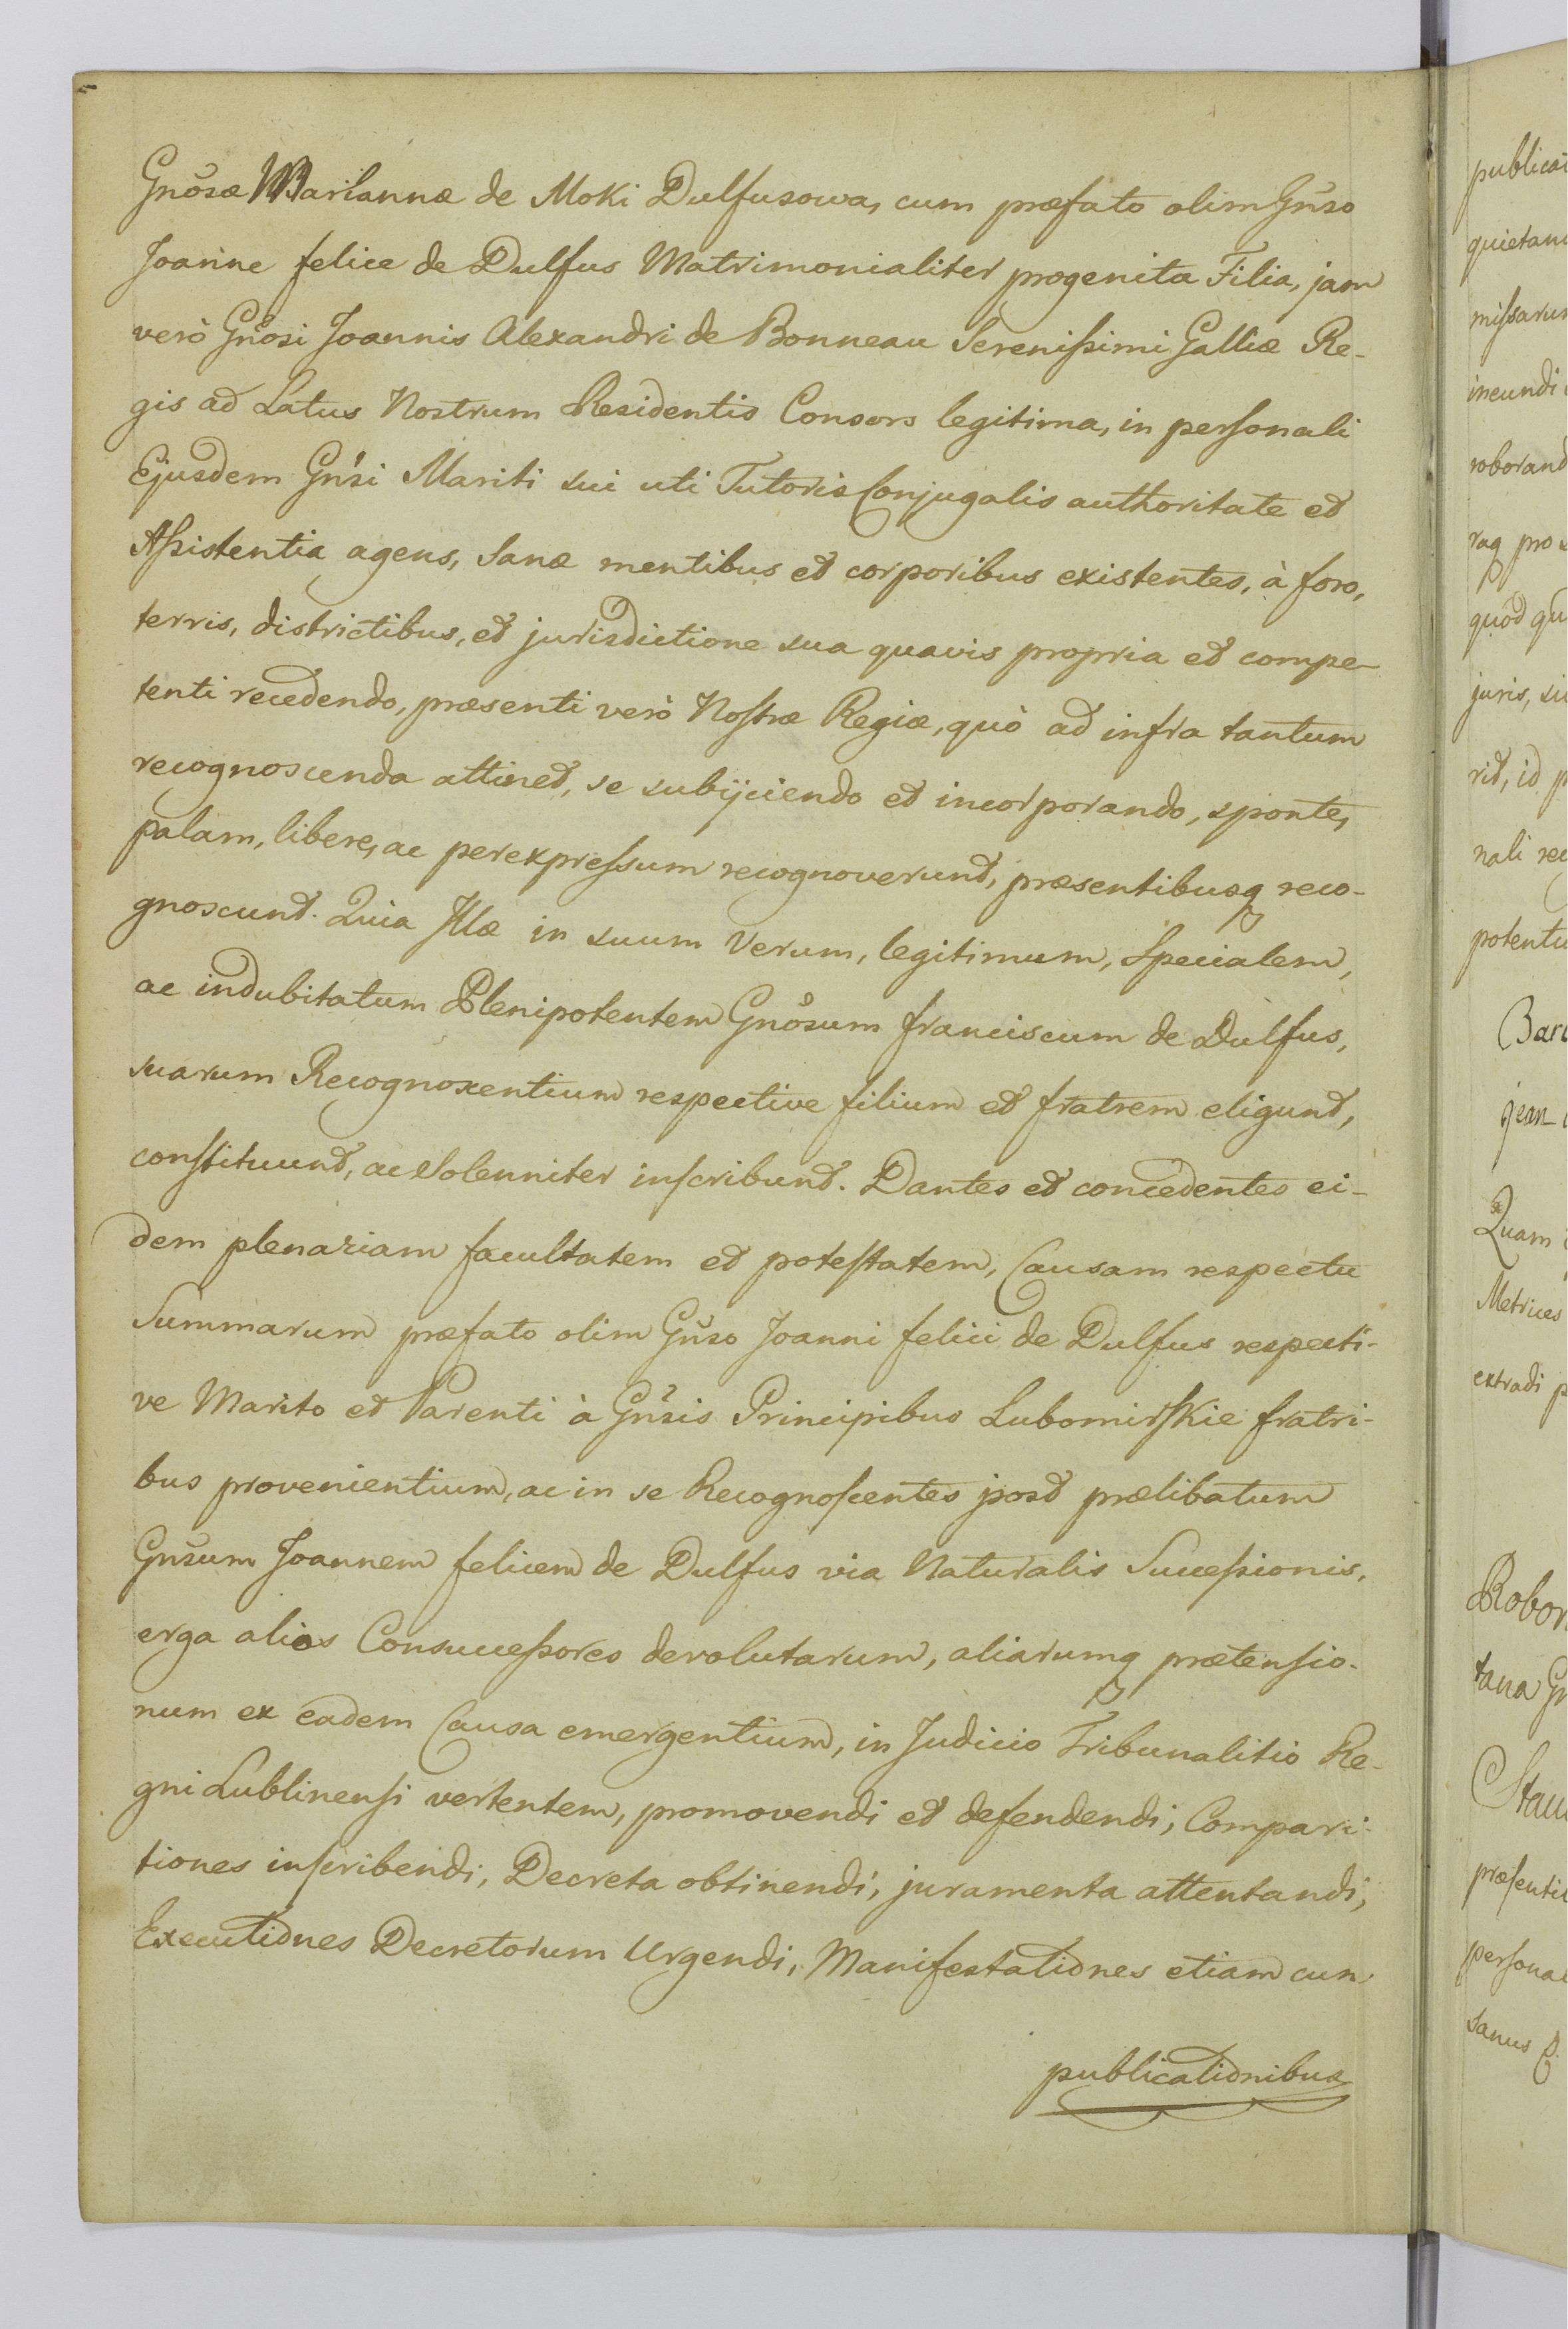 Gnosæ Mariannæ de Moki Dulfusowa, cum præfato olim Gnso
Joanne felice de Dulfus Matrimonialiter progenita Filia, jam
verò Gnosi Joannis Alexandri de Bonneau Serenissimi Galliæ Re-
gis ad Latus Nostrum Residentis Consors legitima, in personali
Ejusdem Gnsi Mariti sui uti Tutoris Conjugalis authoritate et
Assistentia agens, Sanæ mentibus et corporibus existentes, à foro,
terris, districtibus, et jurisdictione sua quavis propria et compe-
tenti recedendo, præsenti verò Nostræ Regiæ, quò ad infra tantum
recognoscenda attinet, se subijciendo et incorporando, sponte,
palam, libere, ac perexpressum recognoverunt, præsentibusq reco-
gnoscunt. Quia Illæ in suum verum, legitimum, Specialem,
ac indubitatum Plenipotentem Gnosum franciscum de Dulfus,
suarum Recognoscentium respective filium et fratrem eligunt,
constituunt, ac solenniter inscribunt. Dantes et concedentes ei-
dem plenariam facultatem et potestatem, Causam respectu
Summarum præfato olim Gnso Joanni felici de Dulfus respecti-
ve Marito et Parenti à Gnsis Principibus Lubomirskie fratri-
bus provenientium, ac in se Recognoscentes post prælibatum
Gnsum Joannem felicem de Dulfus via Naturalis Successionis,
erga alios Consuccessores devolutarum, aliarumq prætensio-
num ex eadem Causa emergentium, in Judicio Tribunalitio Re-
gni Lublinensi vertentem, promovendi et defendendi, Compari-
tiones inscribendi, Decreta obtinendi, juramenta attentandi,
Executiones Decretorum Urgendi, Manifestationes etiam cum
publicationibus